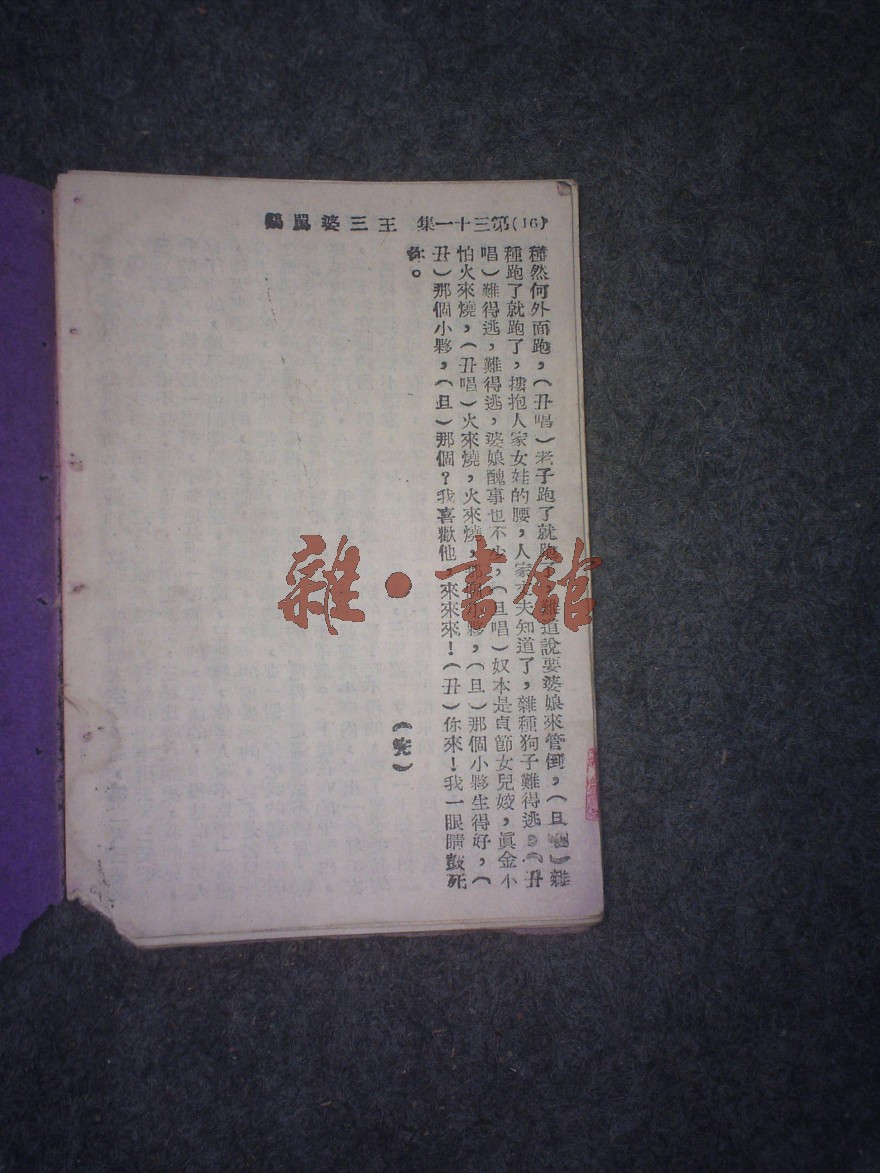 (16)第三十一集 王三婆駡鷄
種然何外面跑，(丑唱)老子跑了就跑了，難道說要婆娘來管倒，(旦唱)雜
種跑了就跑了，摟抱人家女娃的腰，人家丈夫知道了，雜種狗子難得逃。(丑
唱)難得逃，難得逃，婆娘醜事也不少，(旦唱)奴本是貞節女兒姣，眞金小
怕火來燒，(丑唱)火來燒，火來燒，那個小夥，(旦)那個小夥生得好，(
丑)那個小夥，(旦)那個?我喜歡他，來來來!(丑)你來!我一眼睛鼓死
你。
(完)
雜·書館